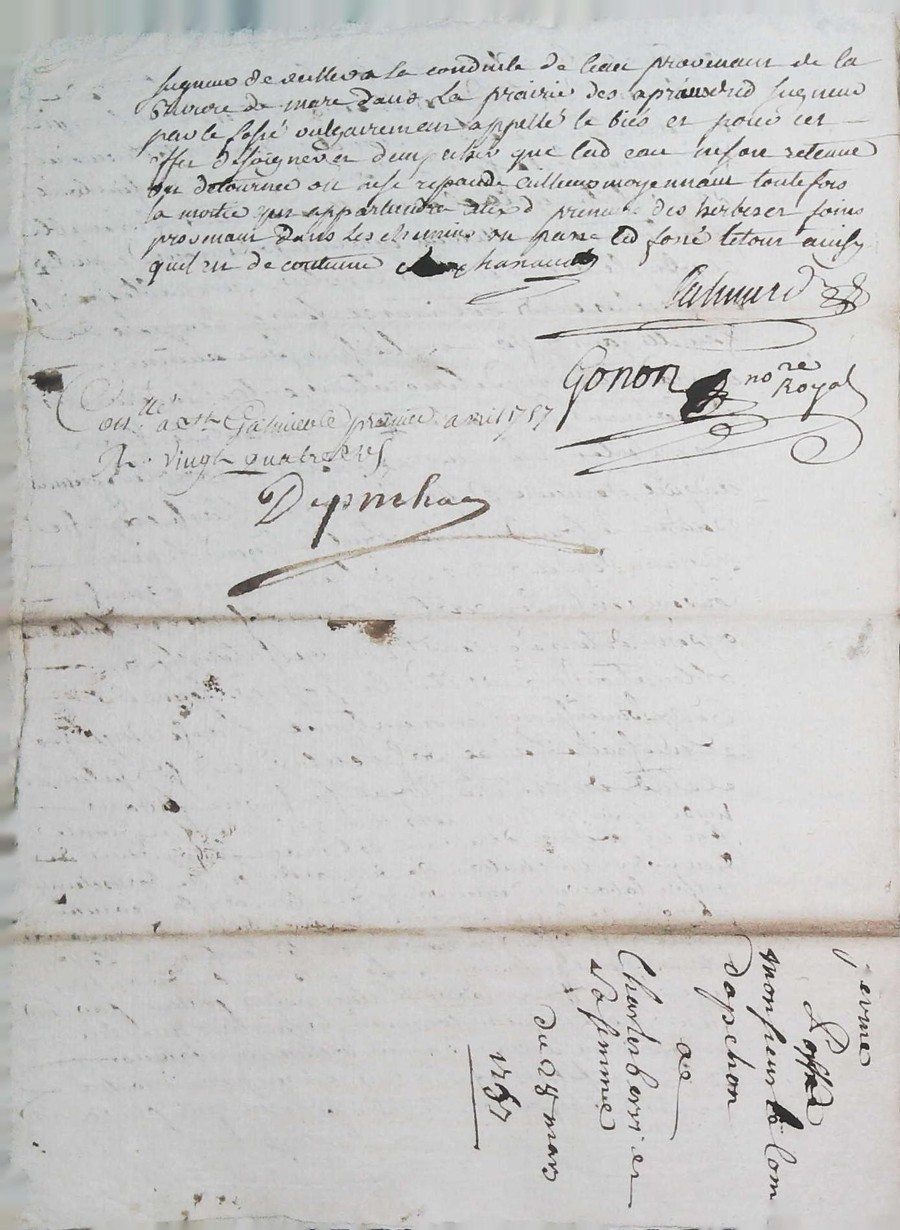 Seigneur de veiller a la conduite de l'eau provenant de la
Riviere de mare dans la prairie des aprais dud Seigneur
par le fossé vulgairement appellé le bies et pour cet
effet Soigner et dempecher que lad eau ne soit retenue
ou detournee ou ne se repande ailleurs moyennant toutefois
la moitié qui appartiendra aud preneur des herbes et foins
provenant dans les chemins ou passe led fossé le tout ainsy
quil en de coutume
Palmard
Gonon nore
Royal
Con.llé a St Galmier le premier avril 1757
R. vingt quatre sols
Depinhac
ferme
Passé
monsieur le Com
dapchon
a
Charles berrier
sa femme
du 28 mars
1757